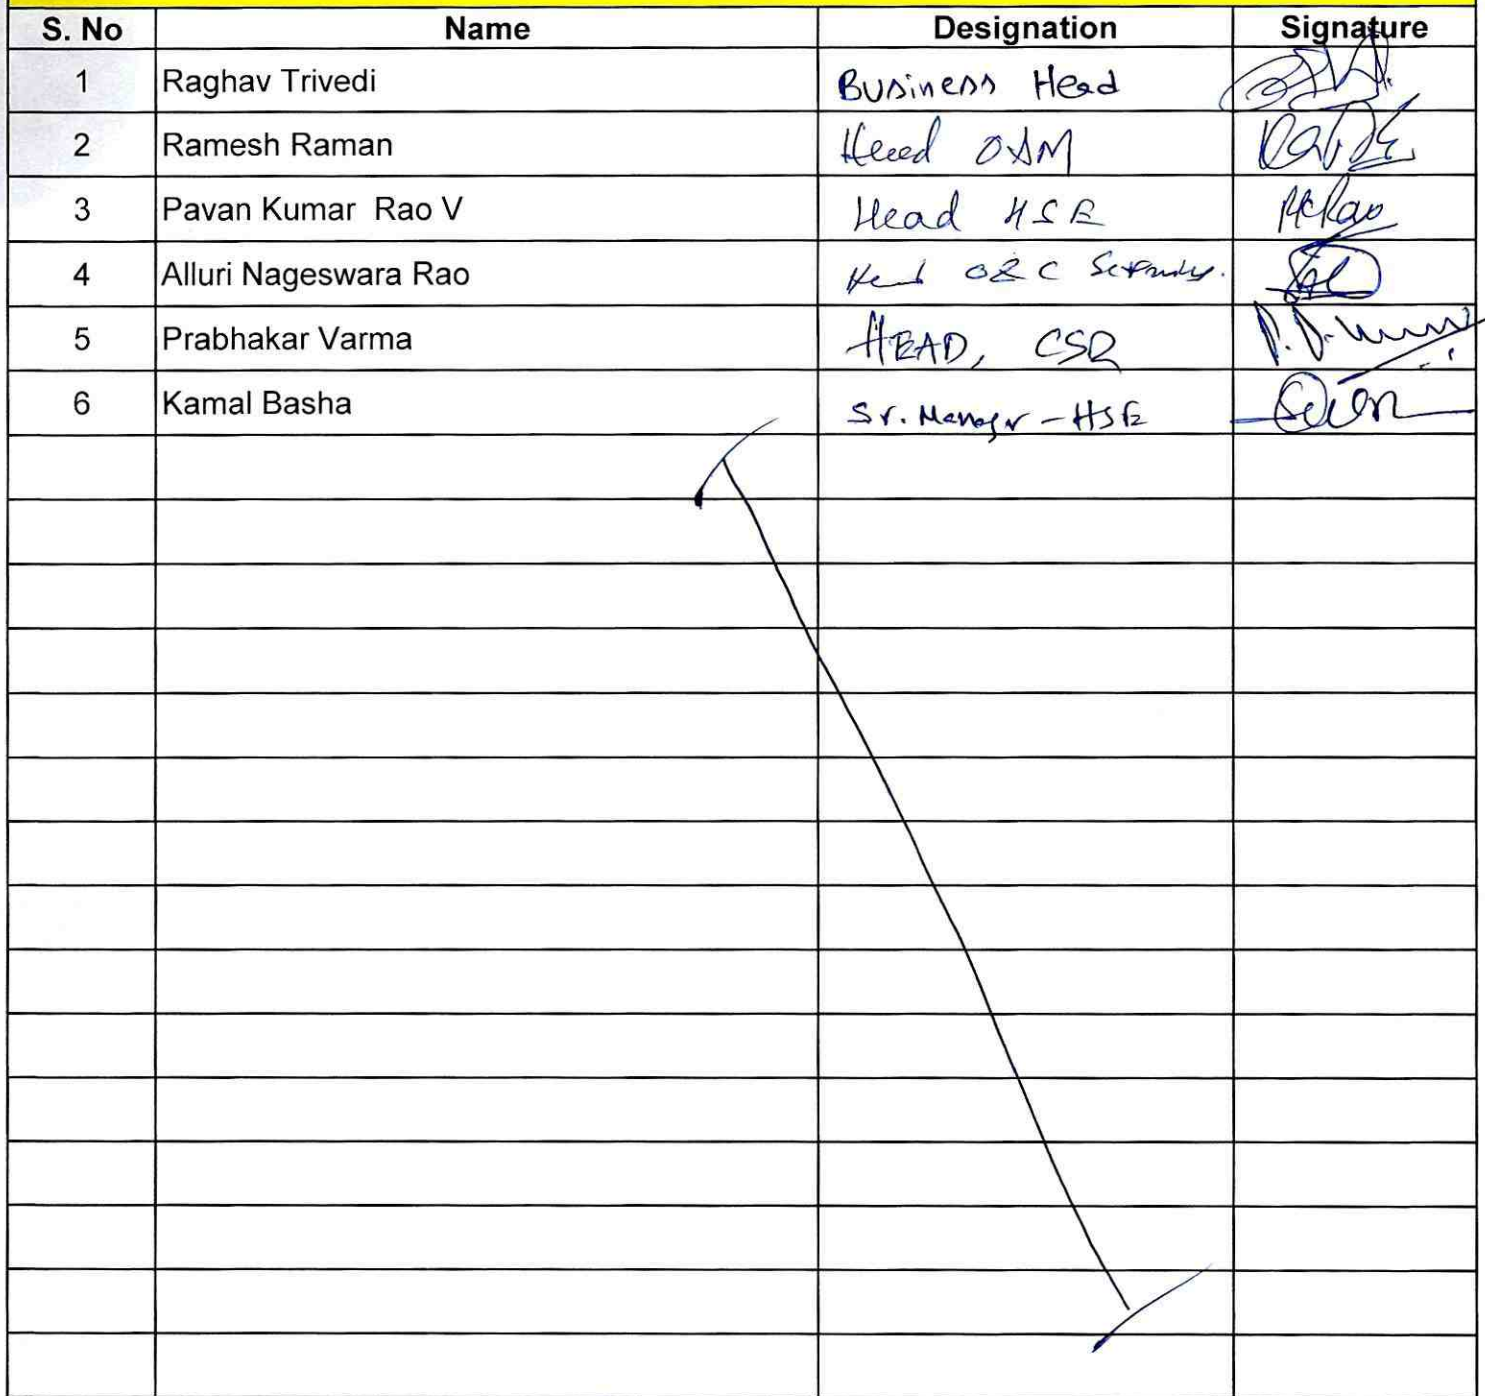 S. No Name Designation Signature
1 Raghav Trivedi Business Head
2 Ramesh Raman Head O&M
3 Pavan Kumar Rao V Head HSE
4 Alluri Nageswara Rao Head O&C
5 Prabhakar Varma HEAD, CSR
6 Kamal Basha Sr. Manager - HSE